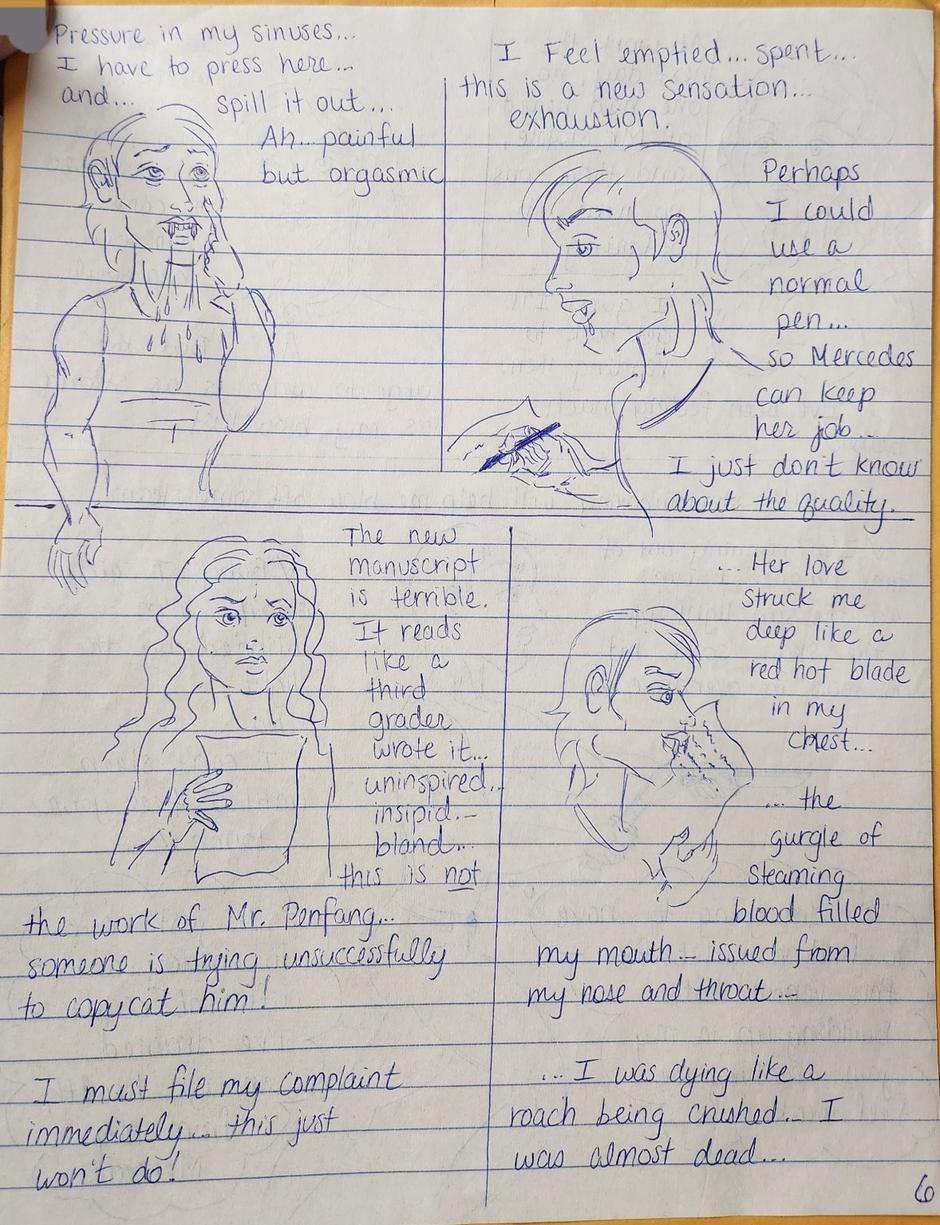 Pressure in my sinuses...
I have to press here...
and... spill it out...
Ah... painful
but orgasmic
I Feel emptied... spent...
this is a new sensation...
exhaustion.
Perhaps
I could
use a
normal
pen...
so Mercedes
can keep
her job...
I just don't know
about the quality.
The new
manuscript
is terrible.
It reads
like a
third
grader
wrote it...
uninspired...
insipid...
bland...
this is not
the work of Mr. Penfang...
someone is trying unsuccessfully
to copycat him!
I must file my complaint
immediately... this just
won't do!
... Her love
struck me
deep like a
red hot blade
in my
chest...
... the
gurgle of
steaming
blood filled
my mouth... issued from
my nose and throat...
... I was dying like a
roach being crushed... I
was almost dead...
6